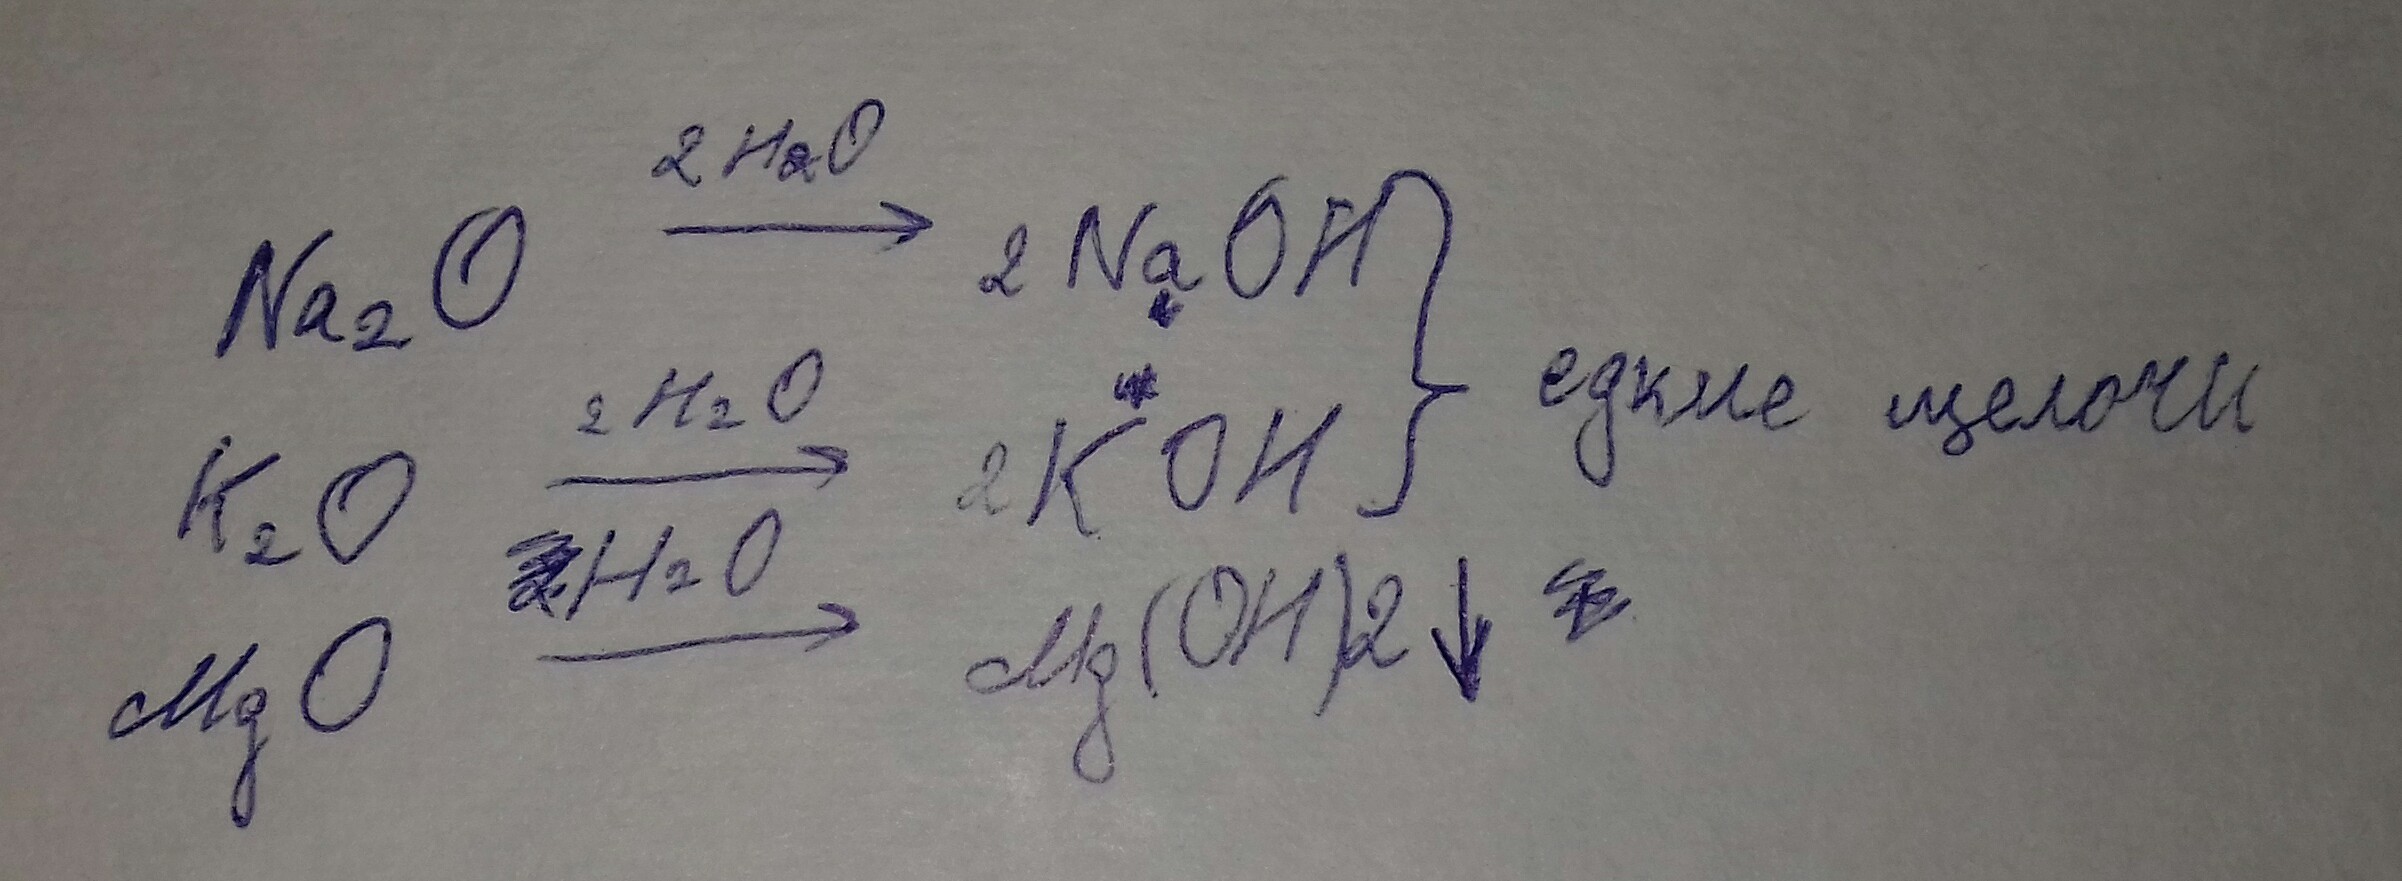 Na₂O 2H₂O → 2NaOH
K₂O 2H₂O → 2KOH } едкие щелочи
MgO H₂O → Mg(OH)2↓